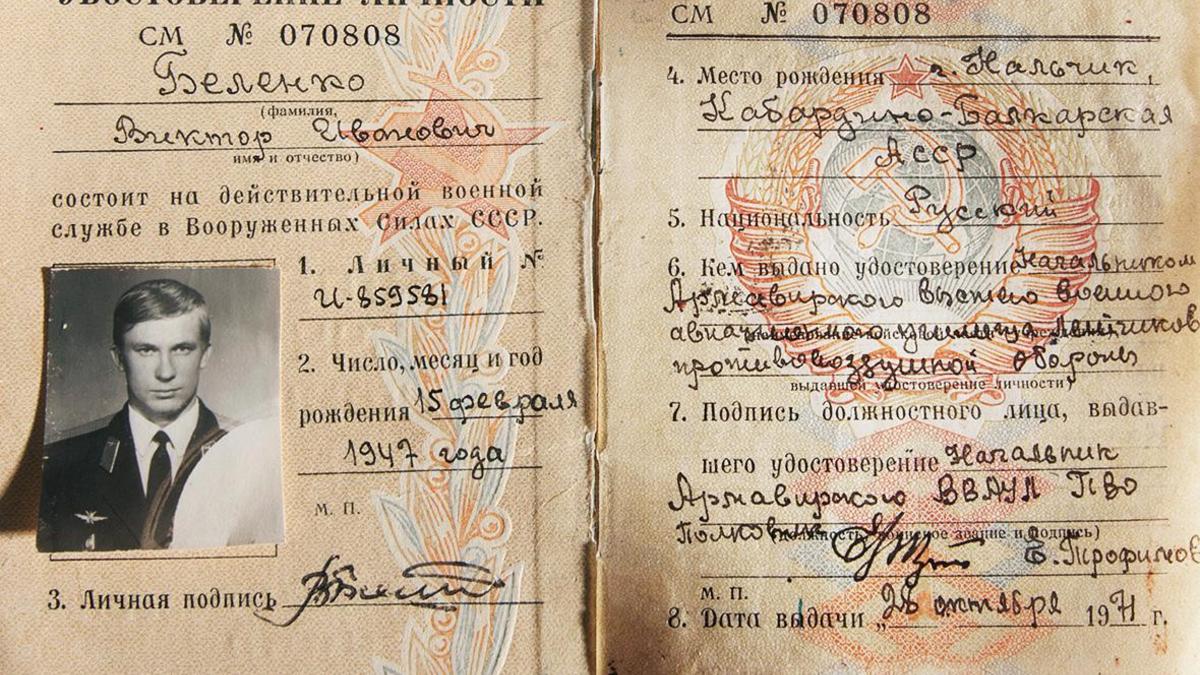 УДОСТОВЕРЕНИЕ ЛИЧНОСТИ
СМ № 070808
Беленко
(фамилия,
Виктор Иванович
имя и отчество)
состоит на действительной военной
службе в Вооруженных Силах СССР.
1. Личный №
И-859581
2. Число, месяц и год
рождения 15 февраля
1947 года
М. П.
3. Личная подпись
СМ № 070808
4. Место рождения г. Нальчик,
Кабардино-Балкарская
АССР
5. Национальность Русский
6. Кем выдано удостоверение Начальником
Армавирского высшего военного
авиационного училища лётчиков
противовоздушной обороны
выдавшей удостоверение личности)
7. Подпись должностного лица, выдав-
шего удостоверение Начальник
Армавирского ВВАУЛ ПВО
Полковник (должность, воинское звание и подпись)
Е. Трофимов
М. П.
8. Дата выдачи „28 октября 1971 г.